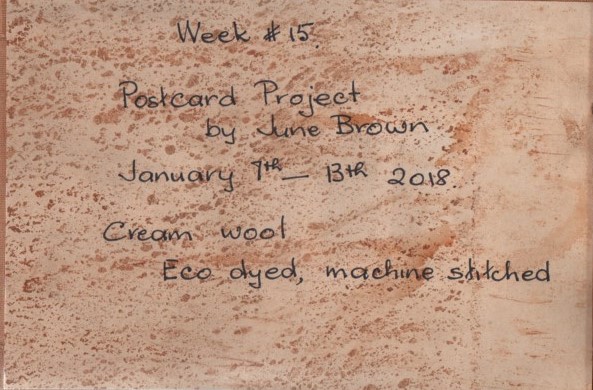 Week #15.
Postcard Project
by June Brown
January 7th – 13th 2018.
Cream wool
Eco dyed, machine stitched